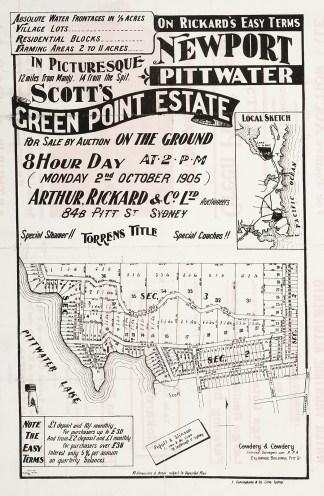 Absolute Water Frontages in ½ Acres
Village Lots
Residential Blocks
Farming Areas 2 to 11 Acres
On Rickard's Easy Terms
Newport
Pittwater
In Picturesque
12 miles from Manly. 14 from the Spit.
Scott's
Green Point Estate
For Sale by Auction On the Ground
8 Hour Day At · 2 · P · M
(Monday 2nd October 1905)
Arthur, Rickard & Co Ltd Auctioneers
84B Pitt St Sydney
Special Steamer!! Torrens Title Special Coaches!!
Local Sketch
Pacific Ocean
Sec. 3
Sec. 2
Sec. 1
Pittwater Lake
Note
The
Easy
Terms
£1 deposit and 10/- monthly
for purchasers up to £30
And from £2 deposit and £1 monthly
for purchasers over £30
Interest only 5% per annum
on quarterly balances